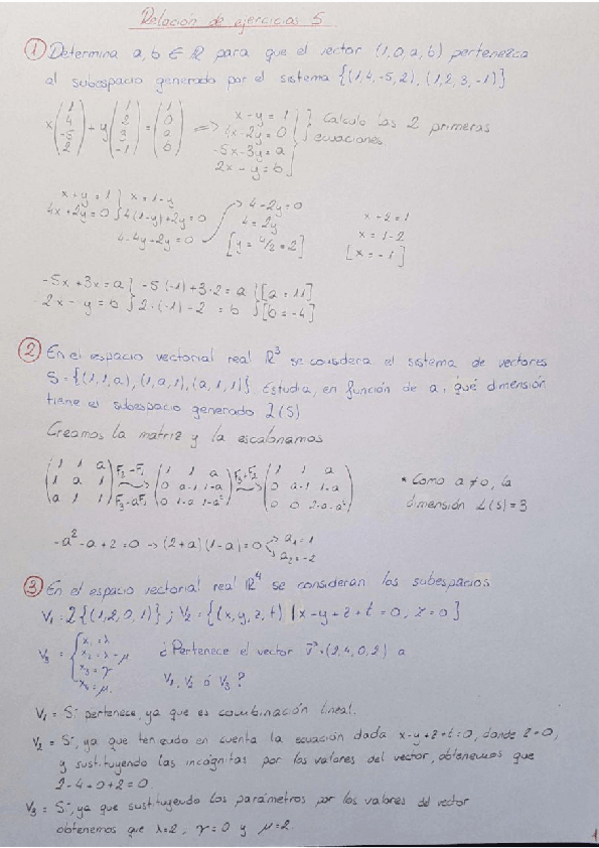 Relación de ejercicios 5
① Determina a, b ∈ R para que el vector (1,0,a,b) pertenezca
al subespacio generado por el sistema {(1,4,-5,2), (1,2,3,-1)}
x (1 4 -5 2) + y (1 2 3 -1) = (1 0 a b) => x - y = 1
4x - 2y = 0
-5x - 3y = a
2x - y = b
Calculo las 2 primeras
ecuaciones
x + y = 1 } x = 1 - y
4x + 2y = 0 } 4(1-y) + 2y = 0
4 - 4y + 2y = 0
4 - 2y = 0
4 = 2y
[y = 4/2 = 2]
x + 2 = 1
x = 1 - 2
[x = -1]
-5x + 3x = a } -5(-1) + 3·2 = a } [a = 11]
2x - y = b } 2·(-1) - 2 = b } [b = -4]
② En el espacio vectorial real R³ se considera el sistema de vectores
S = {(1,1,a), (1,a,1), (a,1,1)}. Estudia, en función de a, qué dimensión
tiene el subespacio generado L(S)
Creamos la matriz y la escalonamos
(1 1 a) F₂-F₁ (1 1 a) F₃+F₂ (1 1 a)
(1 a 1) (0 a-1 1-a) (0 a-1 1-a)
(a 1 1) F₃-aF₁ (0 1-a 1-a²) (0 0 2-a-a²)
* Como a≠0, la
dimensión L(S) = 3
-a² - a + 2 = 0 -> (2+a)(1-a) = 0 a₁ = 1
a₂ = -2
③ En el espacio vectorial real R⁴ se consideran los subespacios
V₁ = L{(1,2,0,1)}; V₂ = {(x,y,z,t) | x-y+z+t = 0, z = 0}
V₃ = { x₁ = λ
x₂ = λ - μ
x₃ = γ
x₄ = μ
¿Pertenece el vector v = (2,4,0,2) a
V₁, V₂ ó V₃?
V₁ = Sí pertenece, ya que es combinación lineal.
V₂ = Sí, ya que teniendo en cuenta la ecuación dada x-y+z+t=0, donde z=0,
y sustituyendo las incógnitas por los valores del vector, obtenemos que
2-4+0+2=0.
V₃ = Sí, ya que sustituyendo los parámetros por los valores del vector
obtenemos que λ=2, γ=0 y μ=2.
1